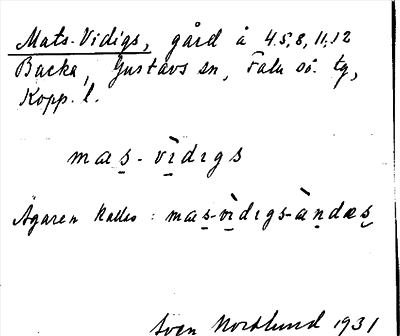 Mats-Vidigs, gård å 4.5, 8, 11, 12
Backa, Gustavs sn, Falu sö. tg,
Kopp. l.
mas̱-vì̱dıgs
Ägaren kallas: mas̱-vì̱dıgs-àṉdæs̱
Sven Norrlund 1931